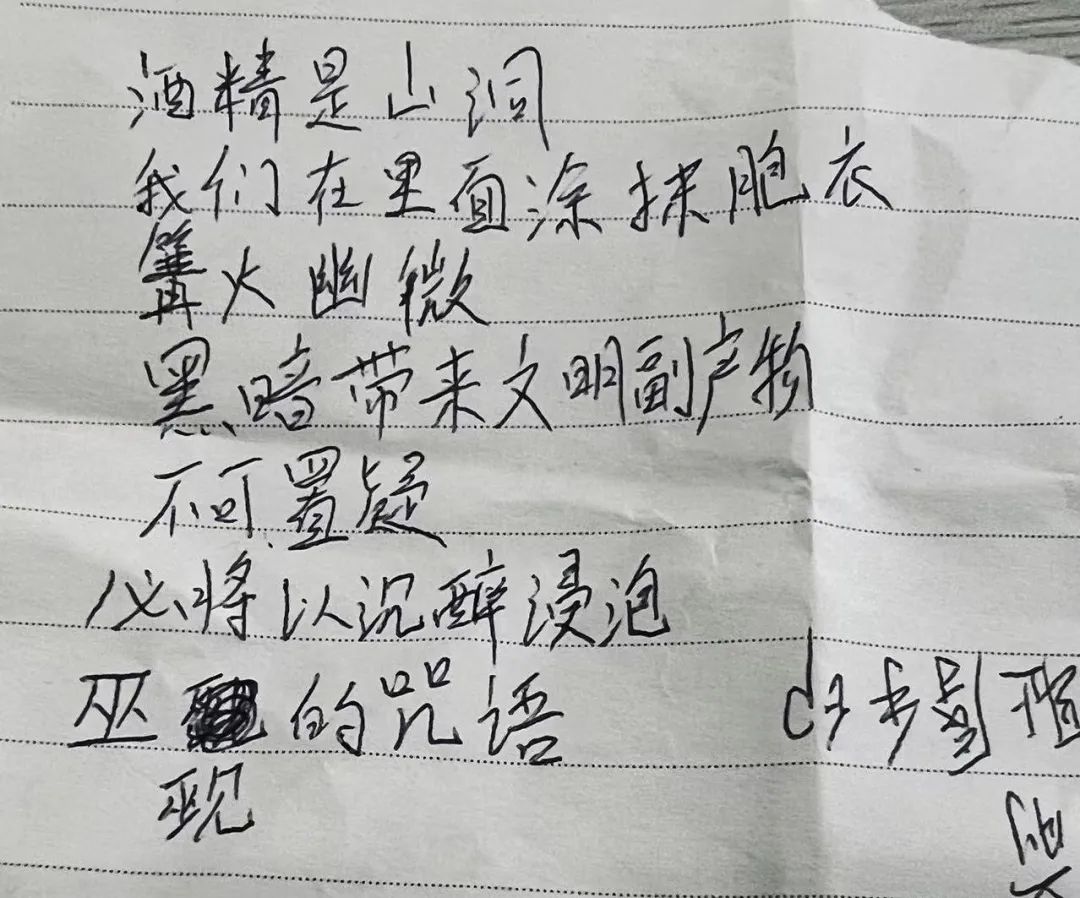 酒精是山洞
我们在里面涂抹胞衣
篝火幽微
黑暗带来文明副产物
不可置疑
必将以沉醉浸泡
巫的咒语
觋